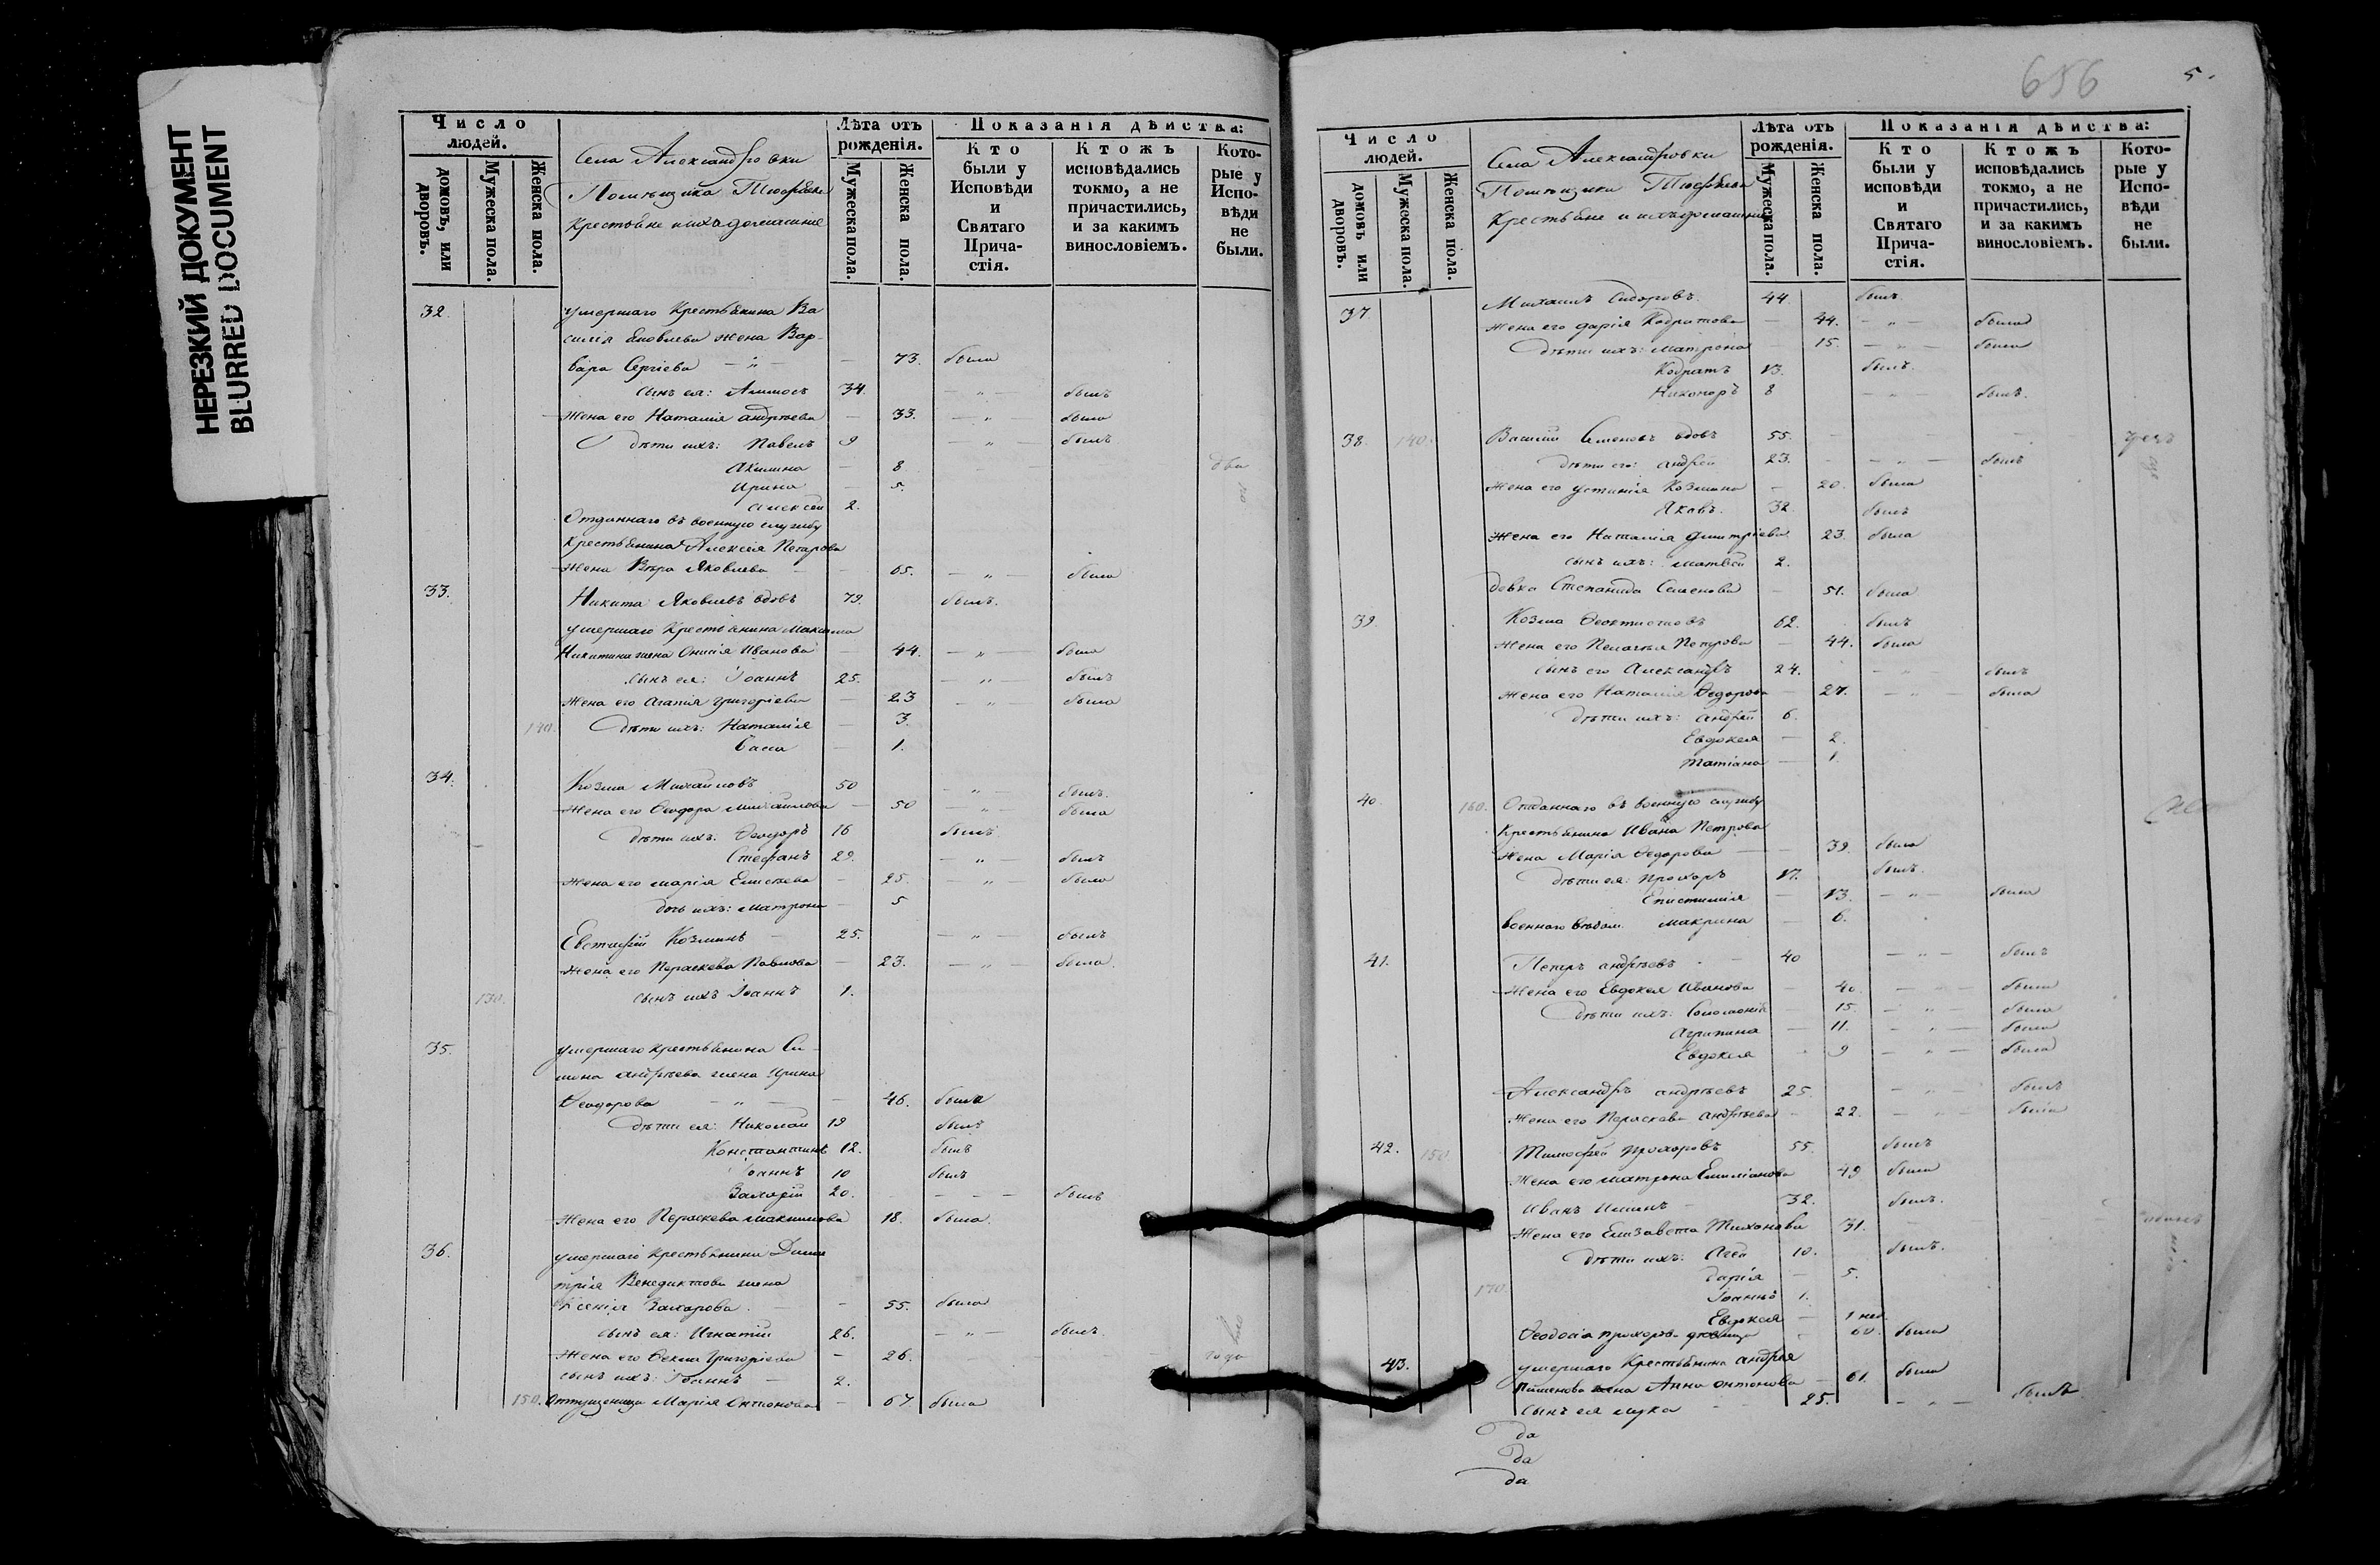 НЕРЕЗКИЙ ДОКУМЕНТ
BLURRED DOCUMENT
Число людей.
домовъ, или дворовъ.
Мужеска пола.
Женска пола.
Села Александровки
Помѣщика
Крестьяне и ихъ домашние
Лѣта отъ рожденія.
Мужеска пола.
Женска пола.
Показанія дѣйства:
Кто были у Исповѣди и Святаго Прича-стія.
Ктожъ исповѣдались токмо, а не причастились, и за какимъ винословіемъ.
Кото-рые у Испо-вѣди не были.
32. умершаго Крестьянина Ва
силія Яковлева жена Вар-
вара Сергіева — „ — — 73. была
сынъ ея: 34. — „ — былъ
Жена его Наталія андреева — 33. — „ была
дѣти ихъ: Павелъ 9 — „ — былъ
Акилина — 8
Ирина — 5.
Алексей 2.
Отданнаго въ военную службу
Крестьянина Алексія Петрова
жена Вѣра Яковлева — — 65. — „ — была
33. Никита Яковлевъ вдовъ 79. былъ.
умершаго Крестьянина Максима
Никитина жена Онисія Иванова — 44. — „ — была
сынъ ея: Іоаннъ 25. — „ — былъ
жена его Агапія григоріева — 23 — „ — была
140. дѣти ихъ: Наталія — 3.
Васса — 1.
34. Козма Михаиловъ 50 — „ — былъ.
Жена его Ѳеодора михаилова — 50 — „ — была
дѣти ихъ: Ѳеодоръ 16 былъ
Стефанъ 29. — „ — былъ
жена его марія Елисеева — 25. — „ — была
дочь ихъ: матрона — 5
Евстифій Козминъ — 25. — „ — былъ
жена его Параскева Павлова — 23. — „ — была.
130. сынъ ихъ Іоаннъ 1.
35. умершаго крестьянина Си-
мона андреева жена Ирина
Ѳеодорова — „ — — 46. была
дѣти ея: Николаи 19 былъ
Константинъ 12. былъ
Іоаннъ 10 былъ
20. — — — былъ
жена его Параскева максимова 18. была.
36. умершаго крестьянина Дими
трія Венедиктова жена
Ксенія Захарова. — — 55. была
сынъ ея: Игнатій 26. — „ — былъ.
жена его Ѳекла Григоріева — 26. года
сынъ ихъ: Іоаннъ — 2.
150. Марія Антонова — 67 была
656
5.
Число людей.
домовъ или дворовъ.
Мужеска пола.
Женска пола.
Села Александровки
Крестьяне и ихъ домашние
Лѣта отъ рожденія.
Мужеска пола.
Женска пола.
Показанія дѣйства:
Кто были у исповѣди и Святаго Прича-стія.
Ктожъ исповѣдались токмо, а не причастились, и за какимъ винословіемъ.
Кото-рые у Испо-вѣди не были.
37 Михаилъ Сидоровъ. 44. былъ.
жена его дарія Кодратова — 44. — „ — была
дѣти ихъ: матрона 15. — „ — была
Кодратъ 13. былъ.
Никоноръ 8 — „ — былъ.
38. 140. Василий Семеновъ вдовъ 55. — — —
дѣти его: андрей 23. — „ — былъ
жена его устинія Козмина — 20. была
Яковъ. 32. былъ
жена его Наталія дмитріева 23. была
сынъ ихъ: матвей 2.
девка Степанида Семенова — 51. была
39. Козма Ѳеоктистовъ 62. былъ
жена его Пелагея Петрова — 44. была
сынъ его Александръ 24. — „ — былъ
жена его Наталія Ѳедорова — 27. — „ — была
дѣти ихъ: андрей 6.
Евдокея — 2.
татіана — 1.
40. 160. Отданнаго въ военную службу
Крестьянина Ивана Петрова
жена Марія Ѳедорова — — 39. была
дѣти ея: прохоръ 17. былъ.
Епистимія — 13. — „ — была
макрина — 6.
41. Петръ андреевъ — 40 — „ — былъ
жена его Евдокея Иванова — 40. — „ — была
дѣти ихъ: — 15. — „ — была
Агрипина — 11. — „ — была
Евдокея — 9 — „ — была
Александръ андреевъ 25. — „ — былъ
жена его Параскева андреева — 22. — „ — была
42. 150 Тимофей прохоровъ 55. былъ
жена его матрона Емиліанова 49 была
Иванъ 32. былъ.
жена его Елизавета Тихонова 31. —
дѣти ихъ: Агей 10. былъ.
170. дарія — 5.
Іоаннъ 1.
Евдокея — 1 нед.
Ѳеодосія прохор. девица — 60. была
43. умершаго Крестьянина андрея
жена Анна онтонова — 61. была
сынъ ея лука — 25. — „ — былъ
да
да
да